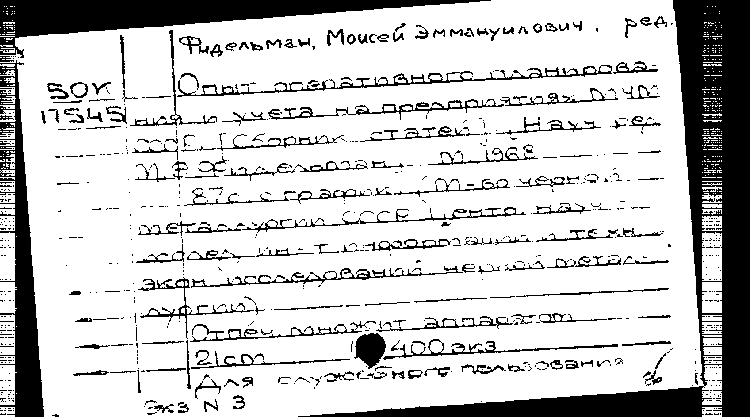 Фидельман, Моисей Эммануилович, ред.
50К Опыт оперативного планирова-
17545 ния и учета на предприятиях МЧМ
СССР. [Сборник статей]. Науч ред
М.Э Фидельман. М 1968
87с. с график. (М-во черной
металлургии СССР Центр. науч -
исслед ин-т информации и техн -
экон исследований черной метал-
лургии)
Отпеч. множит аппаратом
21cm 400 экз
Для служебного пользования
Экз N 3